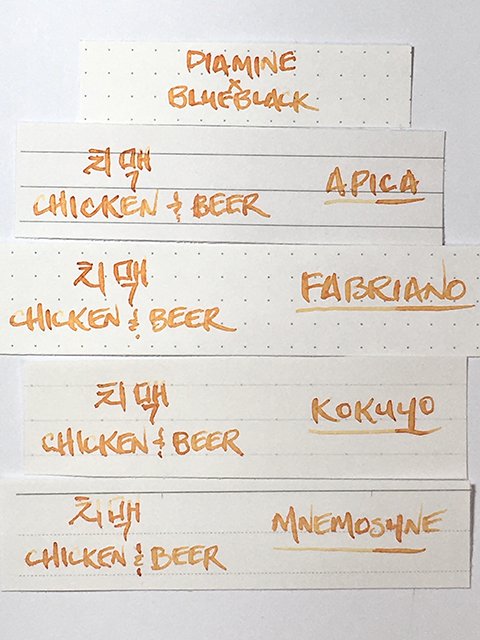 DIAMINE
x
BLUEBLACK
치맥
CHICKEN & BEER
APICA
치맥
CHICKEN & BEER
FABRIANO
치맥
CHICKEN & BEER
KOKUYO
치맥
CHICKEN & BEER
MNEMOSYNE